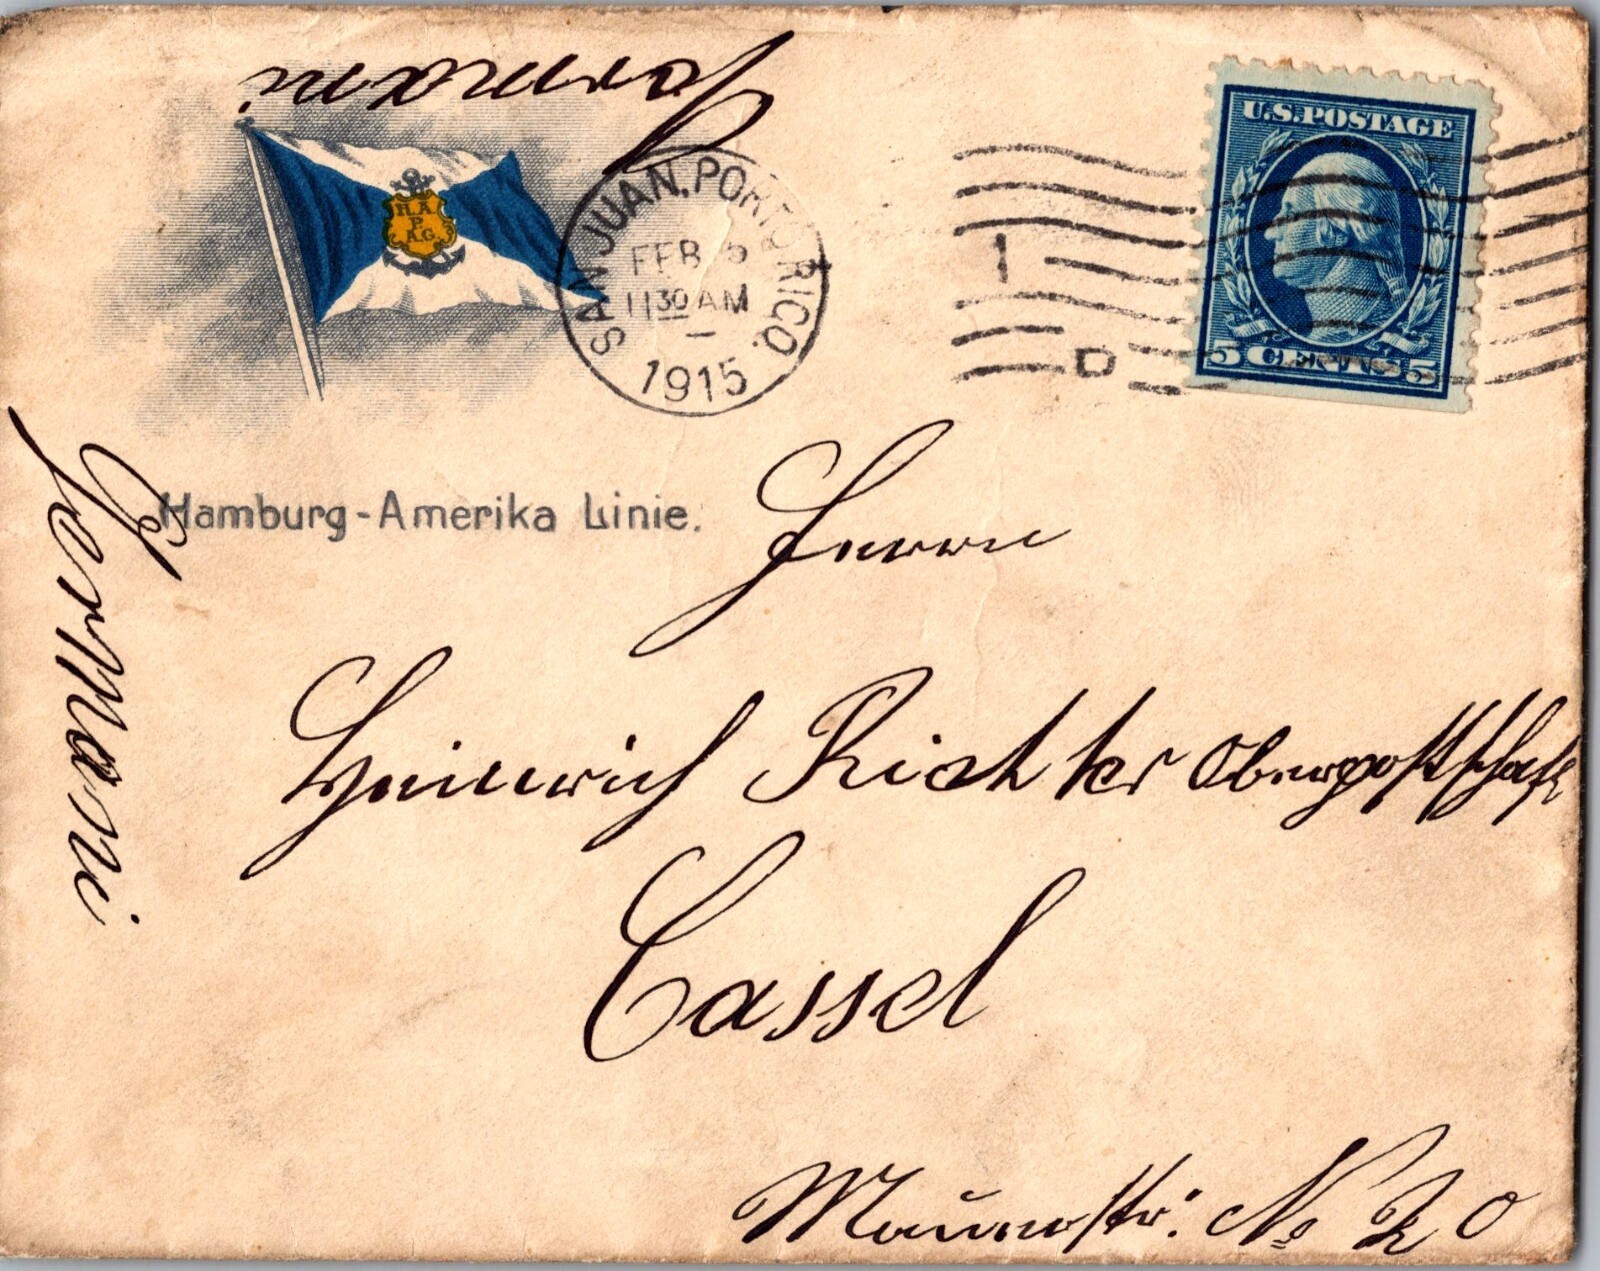 Germani
H.A.
P.
A.G.
SAN JUAN, PORTO RICO.
FEB 5
11 30 AM
1915
1
D
U.S. POSTAGE
5 CENTS 5
Hamburg-Amerika Linie.
Germani
Herrn
Heinrich Richter Oberpostschaff
Cassel
Mauerstr. No 20